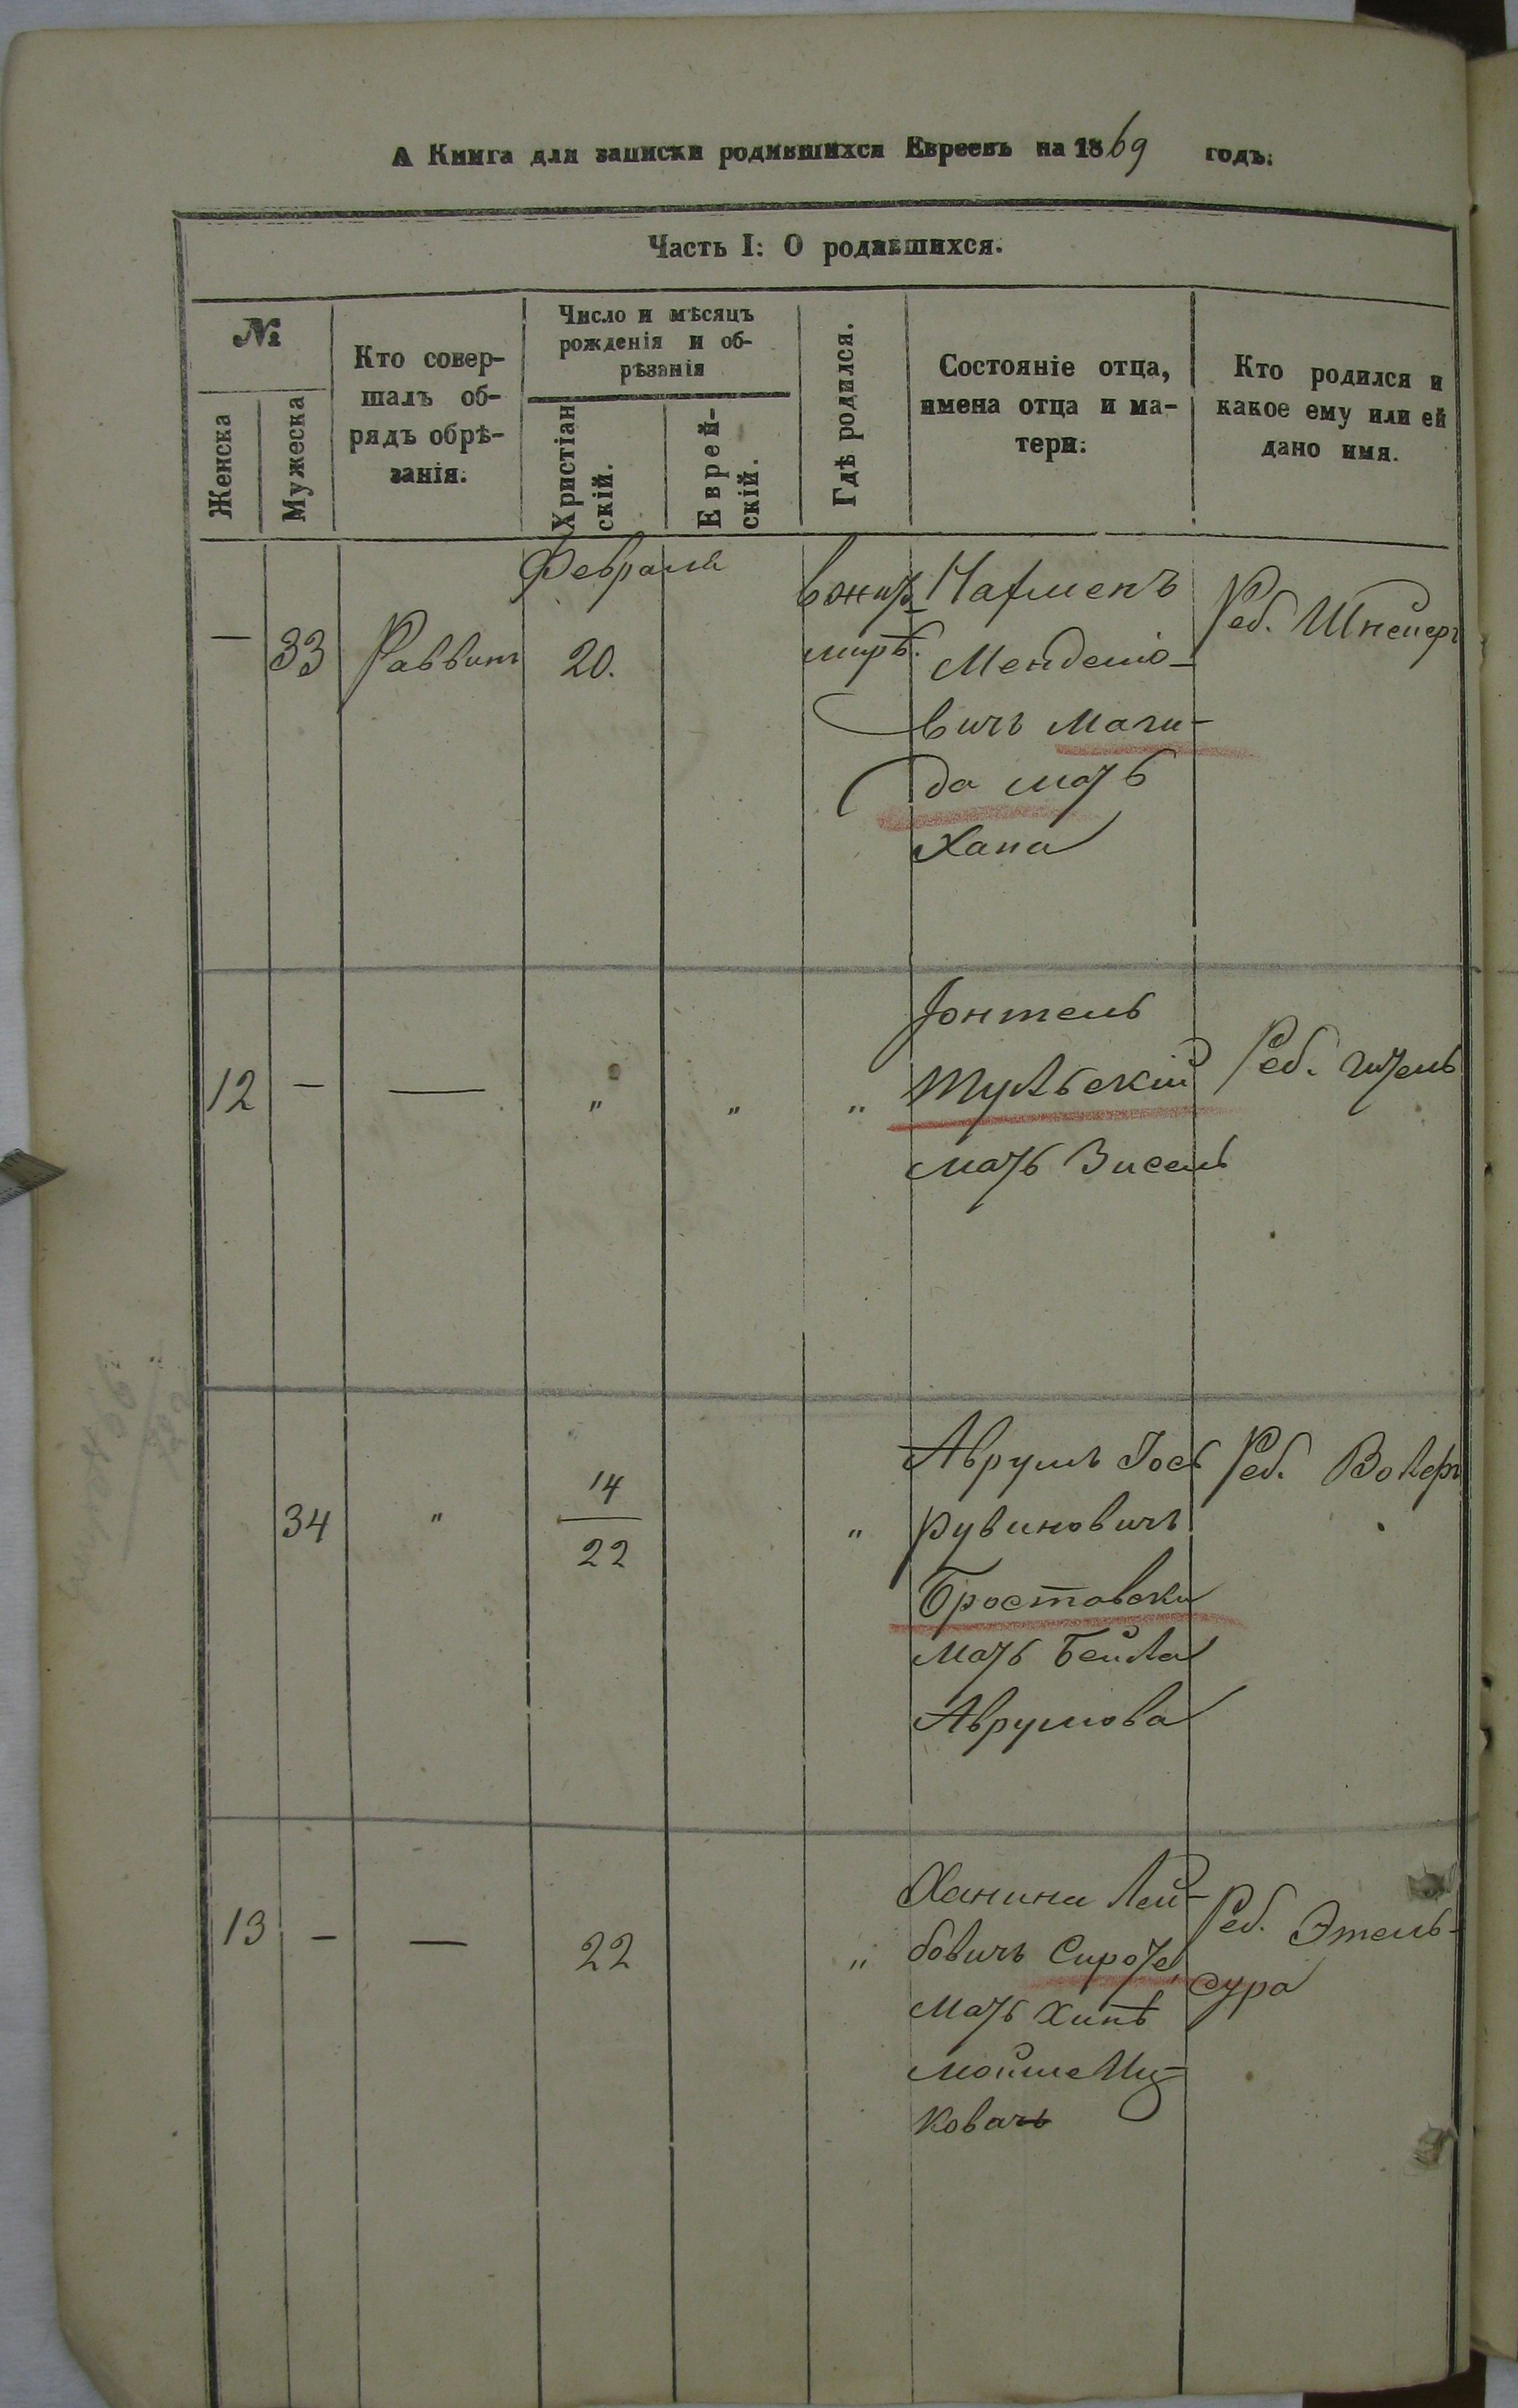 А Книга для записки родившихся Евреевъ на 1869 годъ.
Часть I: О родившихся.
№
Женска
Мужеска
Кто совер-
шалъ об-
рядъ обрѣ-
занія.
Число и мѣсяцъ
рожденія и об-
рѣзанія
Христіан
скій.
Еврей-
скій.
Гдѣ родился.
Состояніе отца,
имена отца и ма-
тери.
Кто родился и
какое ему или ей
дано имя.
Февраля
— 33 Раввинъ 20.
Мендело-
вичъ Маги-
да мать
Хана
Реб. Шнеиеръ
12 — — " " "
Іонтель
Тульскій
мать Зисель
Реб.
34 " 14
22
"
Аврумъ Іось
Рувиновичъ
Бростовски
мать Бейла
Аврумова
Реб. Волфъ
13 — — 22 "
Ханина Лей-
бовичъ Сироте,
мать Хинѣ
Мойше Иц-
ковачъ
Реб. Этель-
сура